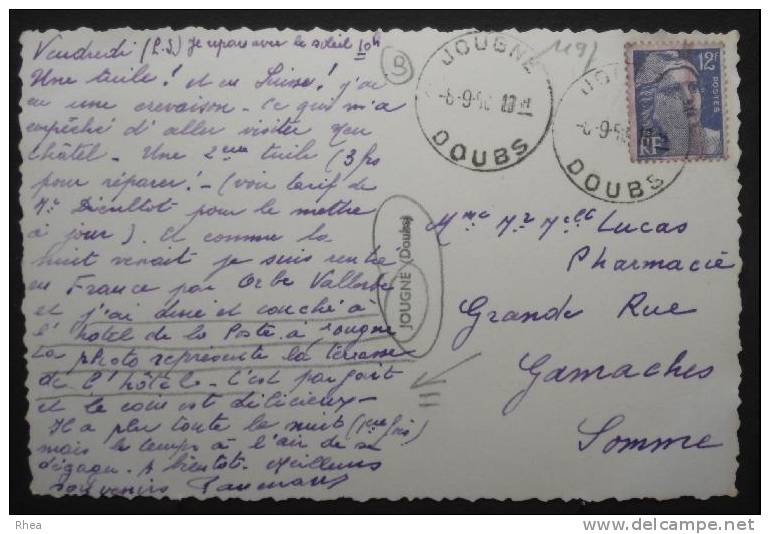 Vendredi (P.S) Je repars avec le soleil 10h
Une tuile! et en Suisse! j'ai
eu une crevaison - ce qui m'a
empêché d'aller visiter Neu
châtel - Une 2eme tuile (3 frs
pour réparer! - (voir tarif de
Mr Dicultot pour le mettre
à jour). Et comme la
nuit venait je suis rentré
en France par Orbe Vallorbe
et j'ai diné et couché à
l'hotel de la Poste à Jougne
La photo représente la terrasse
de l'hôtel - C'est parfait
et le coin est délicieux -
Il a plu toute la nuit (1ere fois)
mais le temps à l'air de se
dégager. A bientot. Meilleurs
souvenirs
B
119
JOUGNE
-8-9-5
DOUBS
JOUGNE
DOUBS
12F
POSTES
RF
JOUGNE (Doubs)
Mme Mr Melle Lucas
Pharmacie
Grande Rue
Gamaches
Somme
Rhea
www.delcampe.net